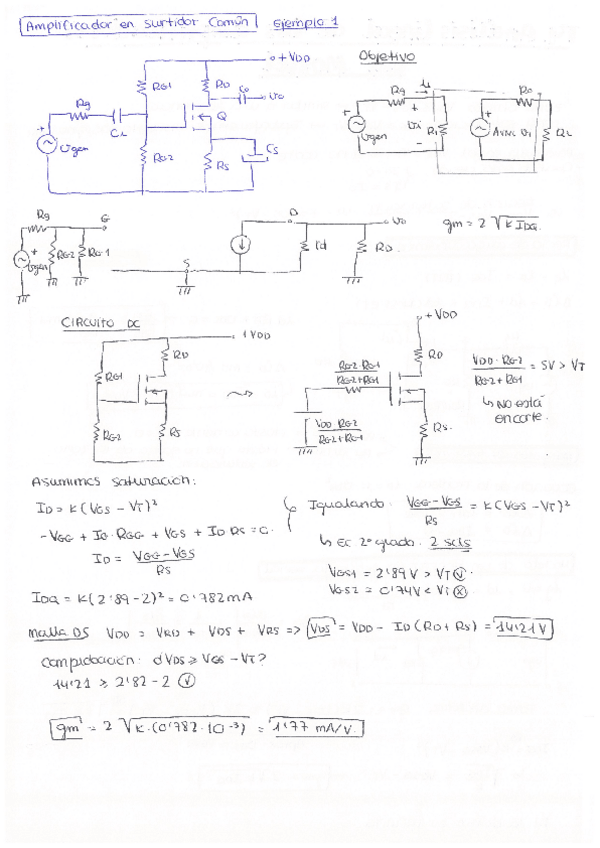 Amplificador en surtidor común | ejemplo 1
Objetivo
+VDD
RG1
RD
Co
Vo
Rg
CL
Q
Vgen
RG2
RS
CS
Rg
Vi
Vgen
Ri
Ro
Avnc Vi
RL
Rg
G
Vgen
RG2
RG1
S
D
rd
RD
Vo
gm = 2 √K IDQ
CIRCUITO DC
+VDD
RG1
RD
RG2
RS
+VDD
RD
RG2·RG1
RG2+RG1
VDD·RG2
RG2+RG1
RS
VDD·RG2 / RG2+RG1 = 5V > VT
↳ No está en corte.
Asumimos saturación:
ID = K(VGS - VT)²
-VGG + IG·RGG + VGS + ID RS = 0.
ID = VGG-VGS / RS
Igualando. VGG-VGS / RS = K(VGS - VT)²
↳ EC 2º grado. 2 sols
VGS1 = 2'89V > VT ✓
VGS2 = 0'74V < VT ✗
IDQ = K(2'89-2)² = 0'782mA
malla DS VDD = VRD + VDS + VRS => VDS = VDD - ID(RD+RS) = 14'21V
comprobación: ¿VDS ≥ VGS - VT?
14'21 ≥ 2'82 - 2 ✓
gm = 2 √K·(0'782·10⁻³) = 1'77 mA/V.